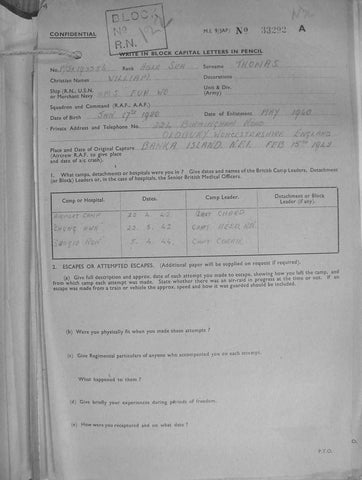 BLOC
No
R.N.
CONFIDENTIAL
M.I. 9/JAP/ No 33292 A
WRITE IN BLOCK CAPITAL LETTERS IN PENCIL
No. Rank Able Sea Surname THOMAS
Christian Names WILLIAM Decorations
Ship (R.N., U.S.N. or Merchant Navy) HMS FUH WO Unit & Div. (Army)
Squadron and Command (R.A.F. A.A.F.)
Date of Birth JAN 17th 1920 Date of Enlistment MAY 1940
Private Address and Telephone No. 224 BIRMINGHAM ROAD
OLDBURY WORCESTERSHIRE ENGLAND
Place and Date of Original Capture BANKA ISLAND N.E.I. FEB 15th 1942
(Aircrew R.A.F. to give place
and date of a/c crash).
1. What camps, detachments or hospitals were you in ? Give dates and names of the British Camp Leaders, Detachment
(or Block) Leaders or, in the case of hospitals, the Senior British Medical Officers.
Camp or Hospital. Dates. Camp Leader. Detachment or Block Leader (if any).
AIRPORT CAMP 22. 4. 42.
CHUNG HWA 22. 5. 42
5. 4. 44.
2. ESCAPES OR ATTEMPTED ESCAPES. (Additional paper will be supplied on request if required).
(a) Give full description and approx. date of each attempt you made to escape, showing how you left the camp, and
from which camp each attempt was made. State whether there was an air-raid in progress at the time or not. If an
escape was made from a train or vehicle the approx. speed and how it was guarded should be included.
(b) Were you physically fit when you made these attempts ?
(c) Give Regimental particulars of anyone who accompanied you on each attempt.
What happened to them ?
(d) Give briefly your experiences during periods of freedom.
(e) How were you recaptured and on what date ?
P.T.O.